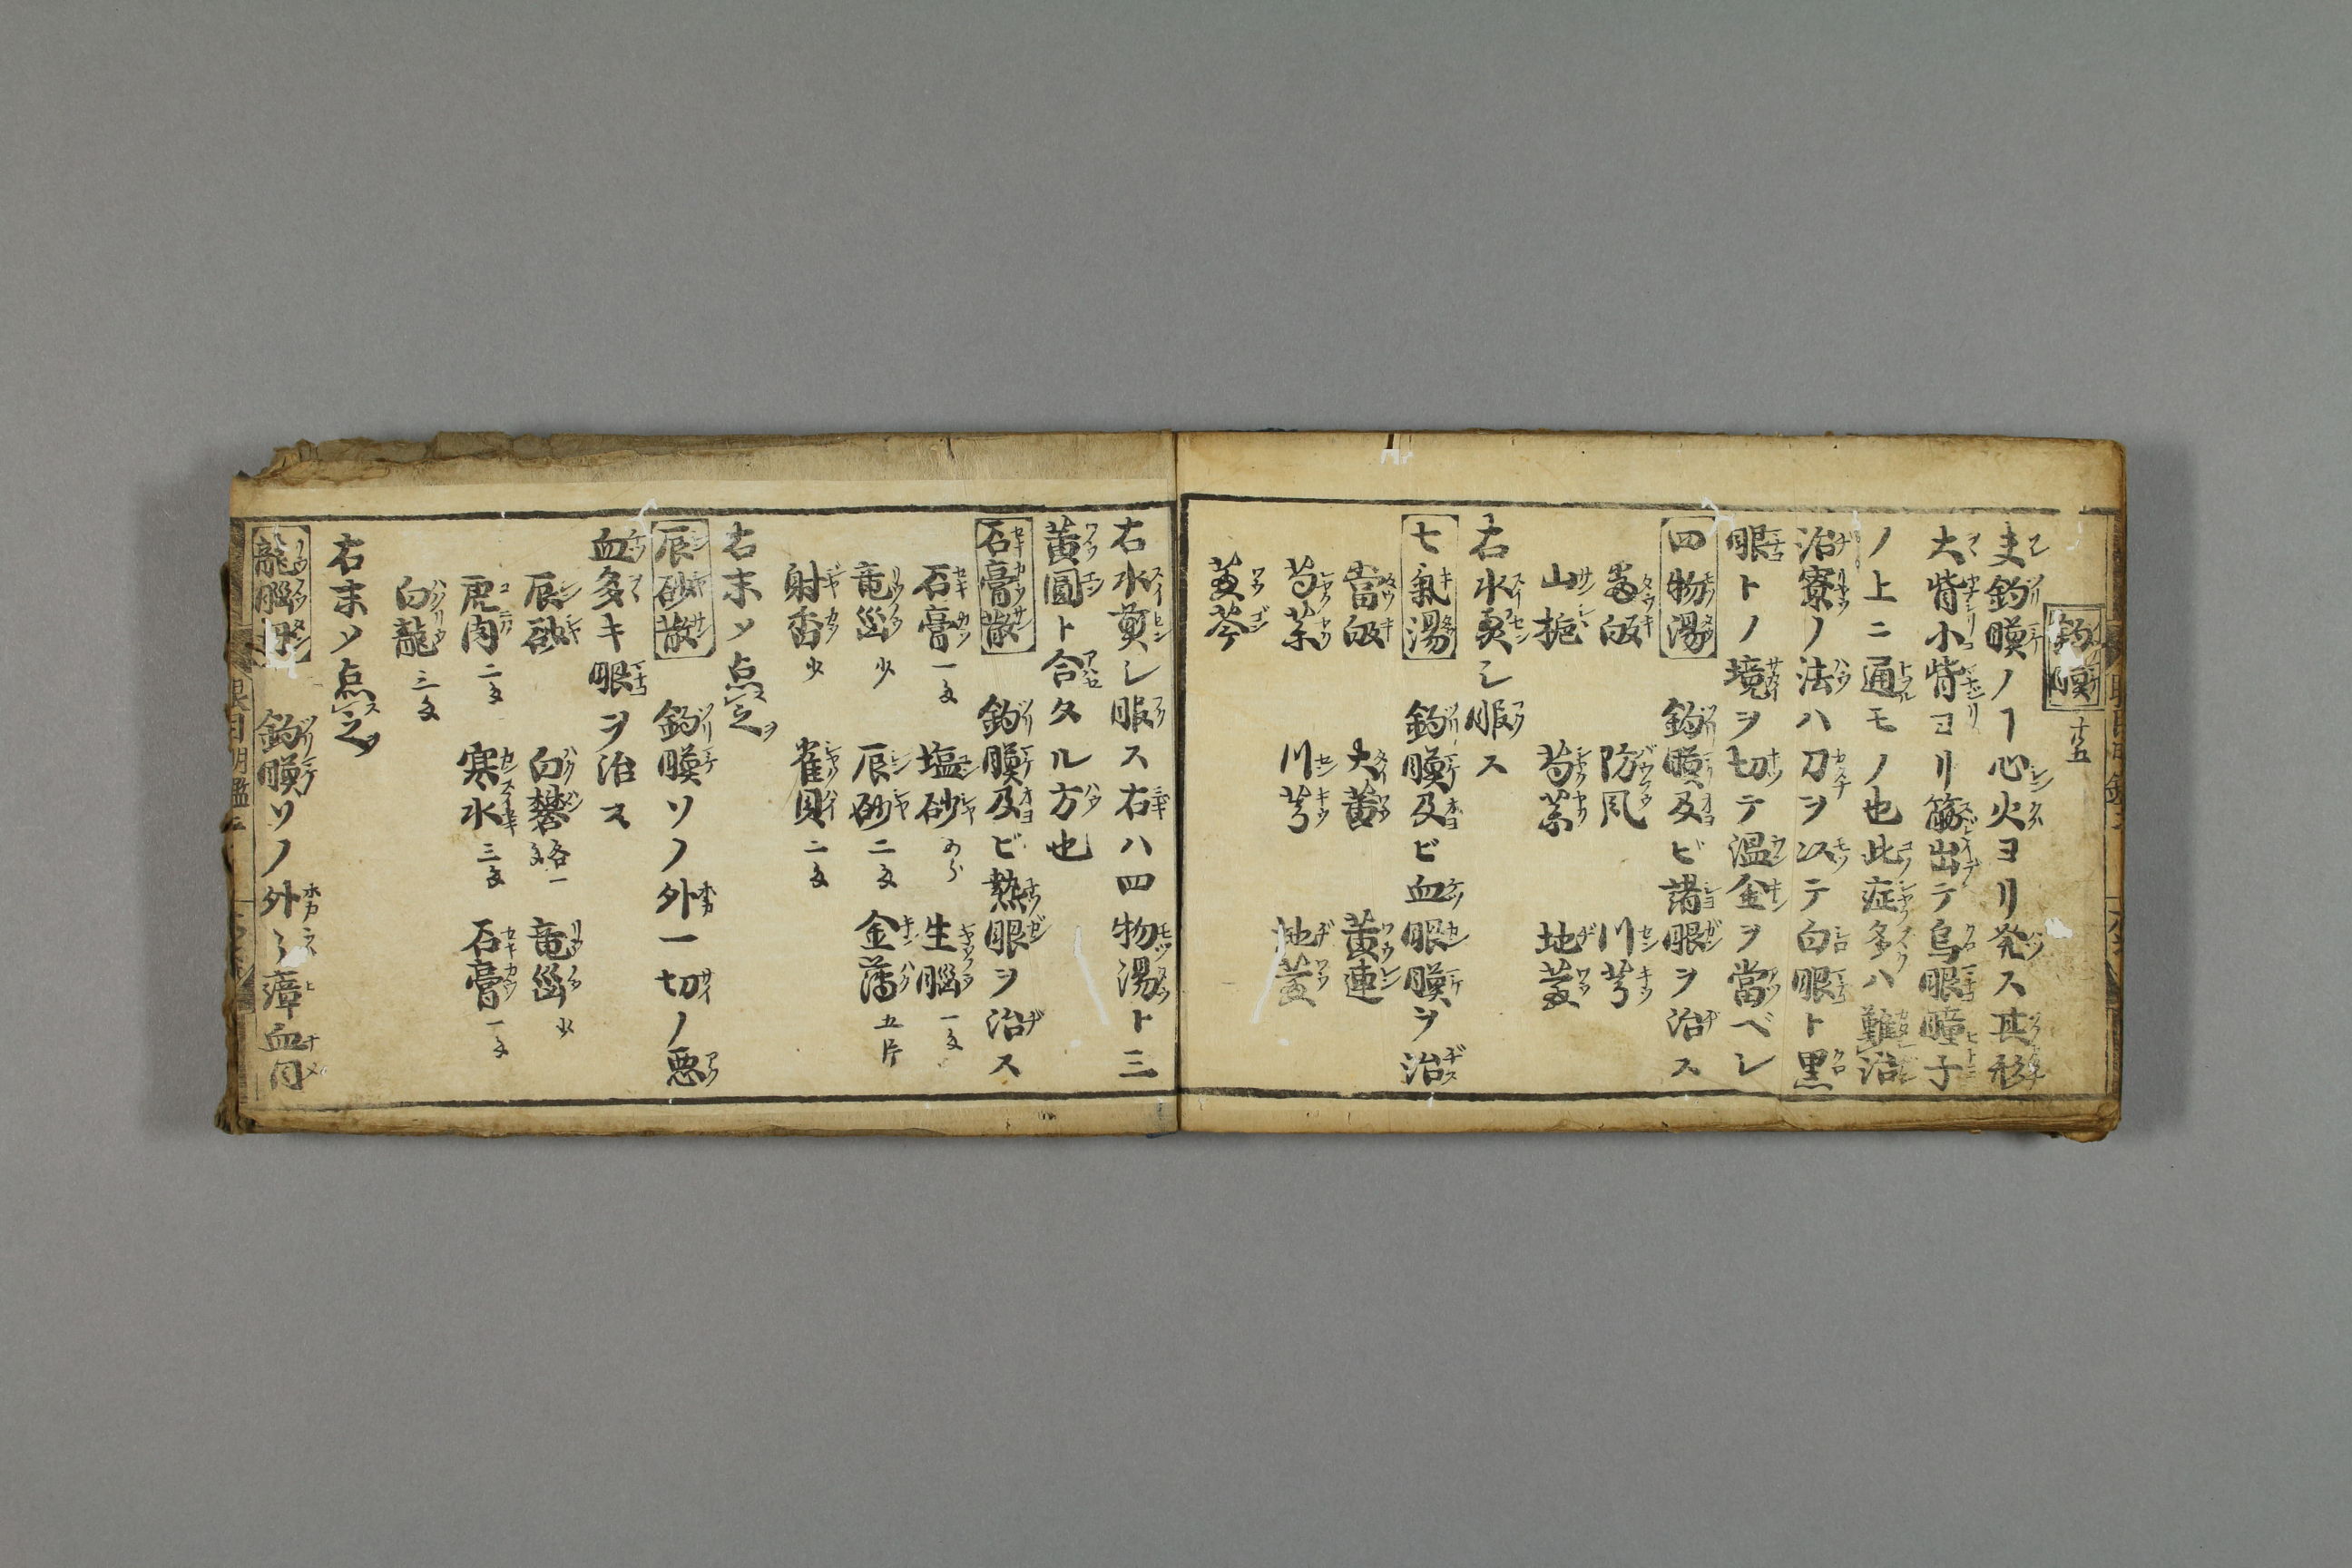 釣瞙 十五
夫釣瞙ノヿ心火ヨリ発ス其形
大眥小眥ヨリ筋出テ烏眼瞳子
ノ上ニ通モノ也此症多ハ難治
治寮ノ法ハ刀ヲ以テ白眼ト黒
眼トノ境ヲ切テ温金ヲ當ベシ
四物湯 釣瞙及ビ諸眼ヲ治ス
當皈 防風 川芎
山梔 芍薬 地黄
右水煎シ服ス
七氣湯 釣瞙及ビ血眼瞙ヲ治
當皈 大黄 黄連
芍薬 川芎 地黄
黄芩
右水煎シ服ス右ハ四物湯ト三
黄圓ト合タル方也
石膏散 釣瞙及ビ熱眼ヲ治ス
石膏一匁 塩砂 生脳一匁
竜脳少 辰砂二匁 金薄五片
射香少 雀貝二匁
右末ソ点之
辰砂散 釣瞙ソノ外一切ノ悪
血多キ眼ヲ治ス
辰砂 白礬各一匁 竜脳少
虎肉二匁 寒水三匁 石膏一匁
白龍三匁
右末ソ点之
龍脳 釣瞙ソノ外